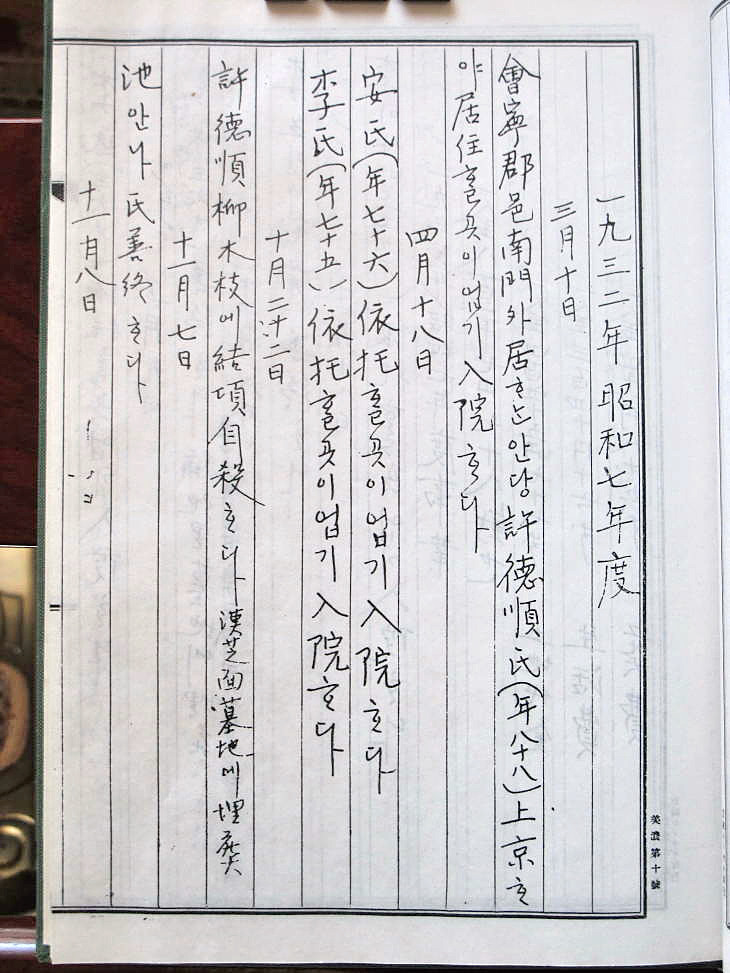 一九三二年 昭和七年度
三月十日
會寧郡邑南門外居ᄒᆞᄂᆞᆫ안당 許德順氏(年八十八)上京ᄒᆞ
야居住ᄒᆞᆯ곳이업기入院ᄒᆞ다
四月十八日
安氏(年七十六)依托ᄒᆞᆯ곳이업기入院ᄒᆞ다
李氏(年七十五)依托ᄒᆞᆯ곳이업기入院ᄒᆞ다
十月二十二日
許德順柳木枝에結項自殺ᄒᆞ다 漢芝面墓地에埋葬
十一月七日
池안나氏善終ᄒᆞ다
十一月八日
美濃第十號